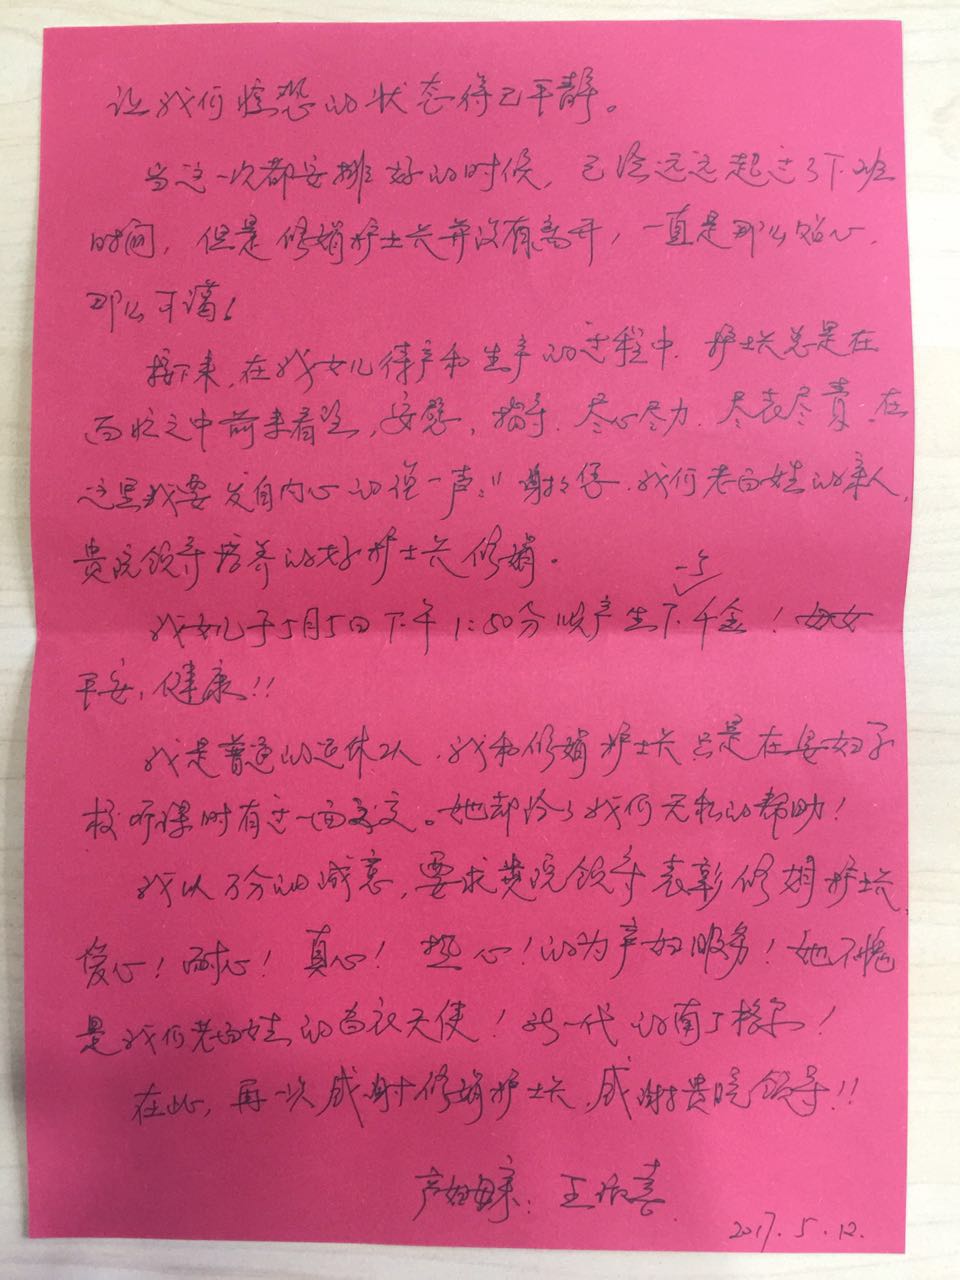 让我们惶恐的状态得已平静。
当这一次都安排好的时候，已经远远超过了下班
时间，但是修娟护士长并没有离开，一直是那么贴心，
那么可蔼！
接下来，在我女儿待产和生产的过程中，护士长总是在
百忙之中前来看望，安慰，指导，尽心尽力，尽表尽责，在
这里我要发自内心的说一声：“谢谢您，我们老百姓的亲人，
贵院领导培养的好护士长修娟。
我女儿于5月5日下午1:50分顺产生下一千金！母女
平安，健康!!
我是普通的退休工人，我和修娟护士长只是在孕妇学
校听课时有过一面之交。她却给了我们无私的帮助！
我以万分的诚意，要求贵院领导表彰修娟护士长，
爱心！耐心！真心！热心！的为产妇服务！她不愧
是我们老百姓的白衣天使！新一代的南丁格尔！
在此，再一次感谢修娟护士长，感谢贵院领导!!
产妇母亲：王喜
2017.5.12.